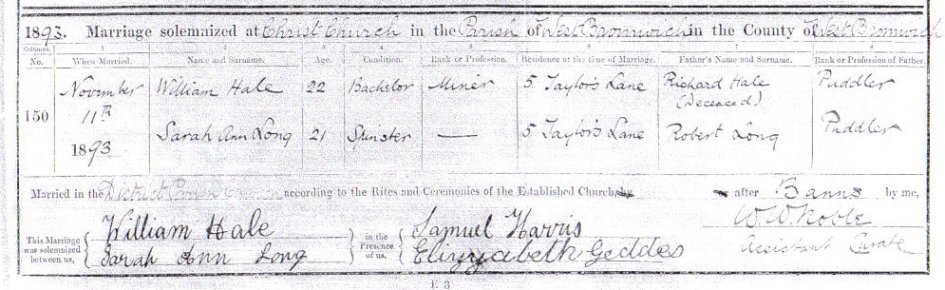 1893. Marriage solemnized at Christ Church in the Parish of West Bromwich in the County of West Bromwich
Columns. 1 2 3 4 5 6 7 8
No. When Married. Name and Surname. Age. Condition. Rank or Profession. Residence at the time of Marriage. Father's Name and Surname. Rank or Profession of Father.
150 November 11th 1893 William Hale 22 Bachelor Miner 5 Taylor's Lane Richard Hale (Deceased) Puddler
Sarah Ann Long 21 Spinster — 5 Taylor's Lane Robert Long Puddler
Married in the District according to the Rites and Ceremonies of the Established Church, after Banns by me,
This Marriage was solemnized between us, { William Hale } in the Presence of us, { Samuel Harris W. W. Noble
Sarah Ann Long Elizyabeth Geddes Assistant Curate
E 3